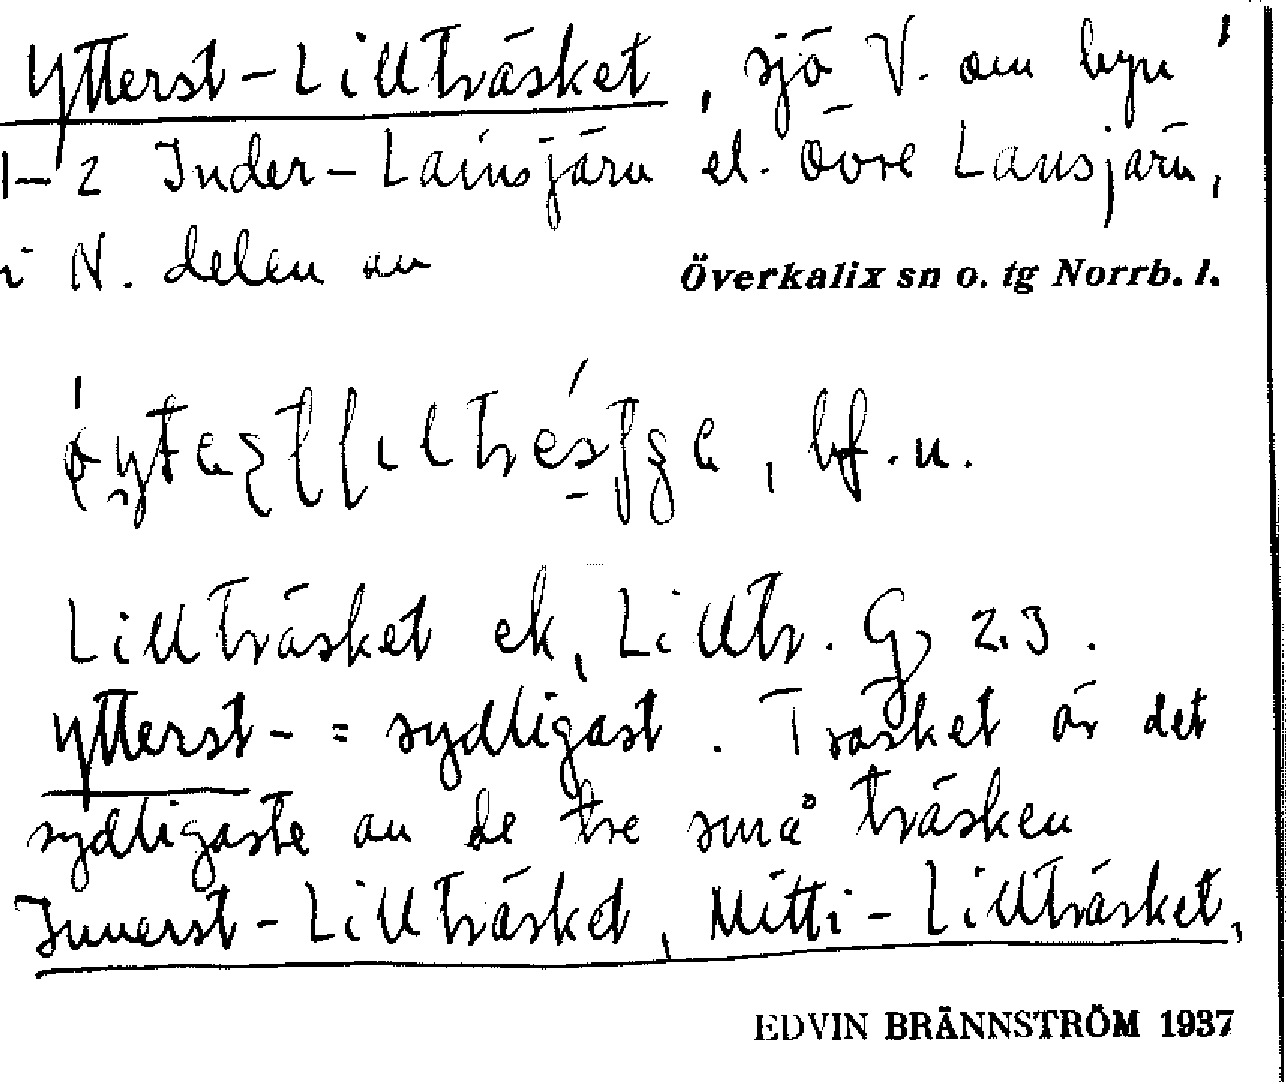 Ytterst-Lillträsket, sjö V. om byn
1-2 Inder-Lainsjärv el. Övre Lansjärv,
i N. delen av
Överkalix sn o. tg Norrb. l.
bf. n.
Lillträsket ek, Lilltr. G 23.
Ytterst- = sydligast. Träsket är det
sydligaste av de tre små träsken
Innerst-Lillträsket, Mitti-Lillträsket,
EDVIN BRÄNNSTRÖM 1937